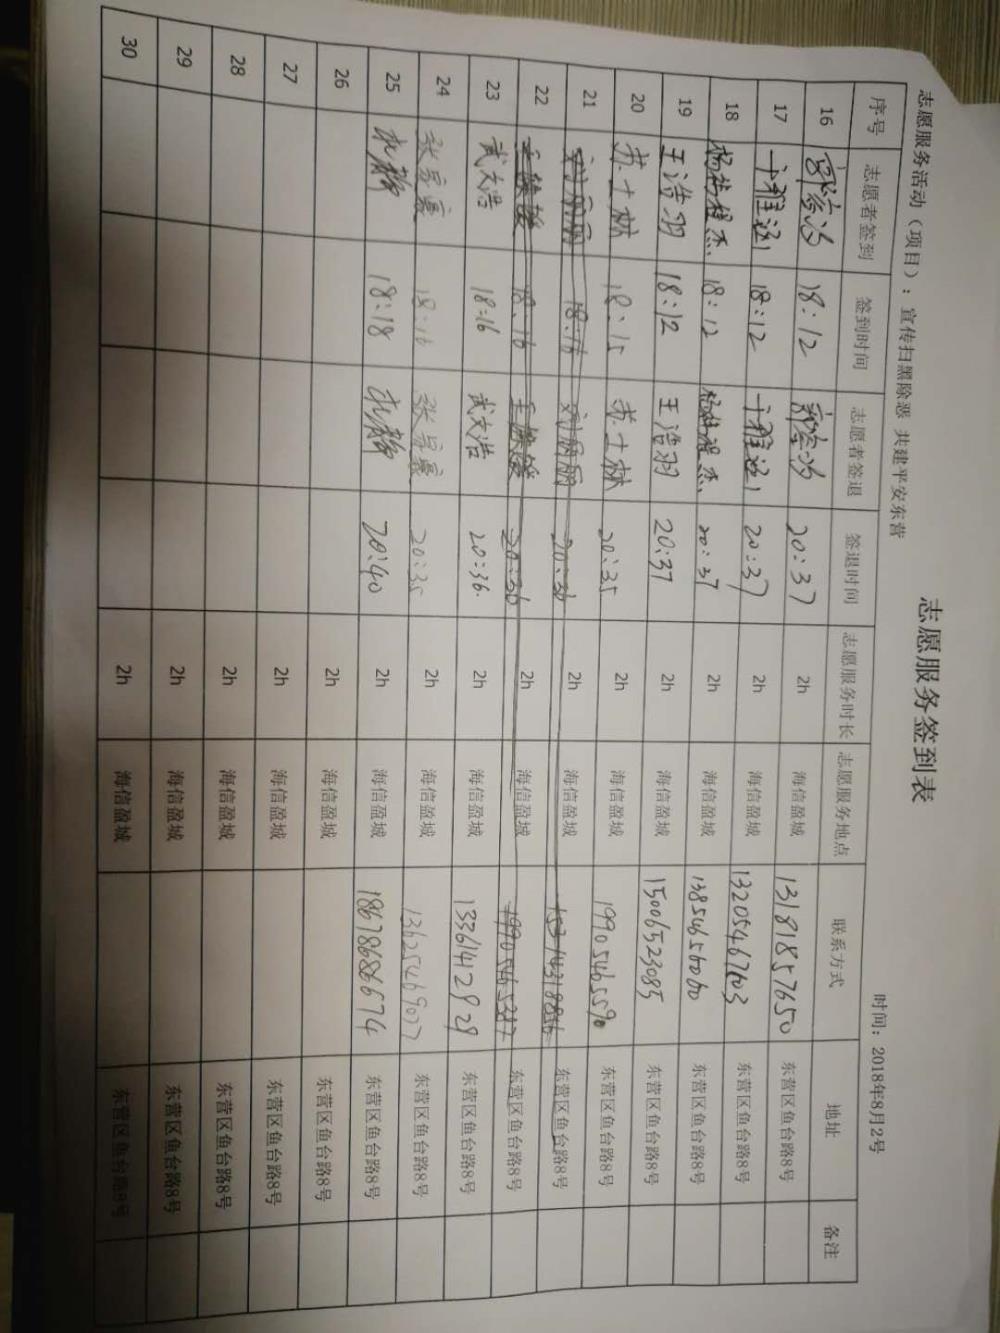 志愿服务签到表
志愿服务活动（项目）：宣传扫黑除恶 共建平安东营 时间：2018年8月2号
序号 志愿者签到 签到时间 志愿者签退 签退时间 志愿服务时长 志愿服务地点 联系方式 地址 备注
16 18:12 20:37 2h 海信盈城 13181857650 东营区鱼台路8号
17 18:12 20:37 2h 海信盈城 13205467603 东营区鱼台路8号
18 18:12 20:37 2h 海信盈城 13854656060 东营区鱼台路8号
19 王浩羽 18:12 王浩羽 20:37 2h 海信盈城 15006523085 东营区鱼台路8号
20 苏士林 18:15 苏士林 20:35 2h 海信盈城 19905465590 东营区鱼台路8号
21 刘丽丽 18:16 刘丽丽 20:36 2h 海信盈城 东营区鱼台路8号
22 18:16 20:36 2h 海信盈城 东营区鱼台路8号
23 武文浩 18:16 武文浩 20:36. 2h 海信盈城 13361412929 东营区鱼台路8号
24 18:16 20:35 2h 海信盈城 13625469077 东营区鱼台路8号
25 18:18 20:40 2h 海信盈城 18678686674 东营区鱼台路8号
26 2h 海信盈城 东营区鱼台路8号
27 2h 海信盈城 东营区鱼台路8号
28 2h 海信盈城 东营区鱼台路8号
29 2h 海信盈城 东营区鱼台路8号
30 2h 海信盈城 东营区鱼台路8号